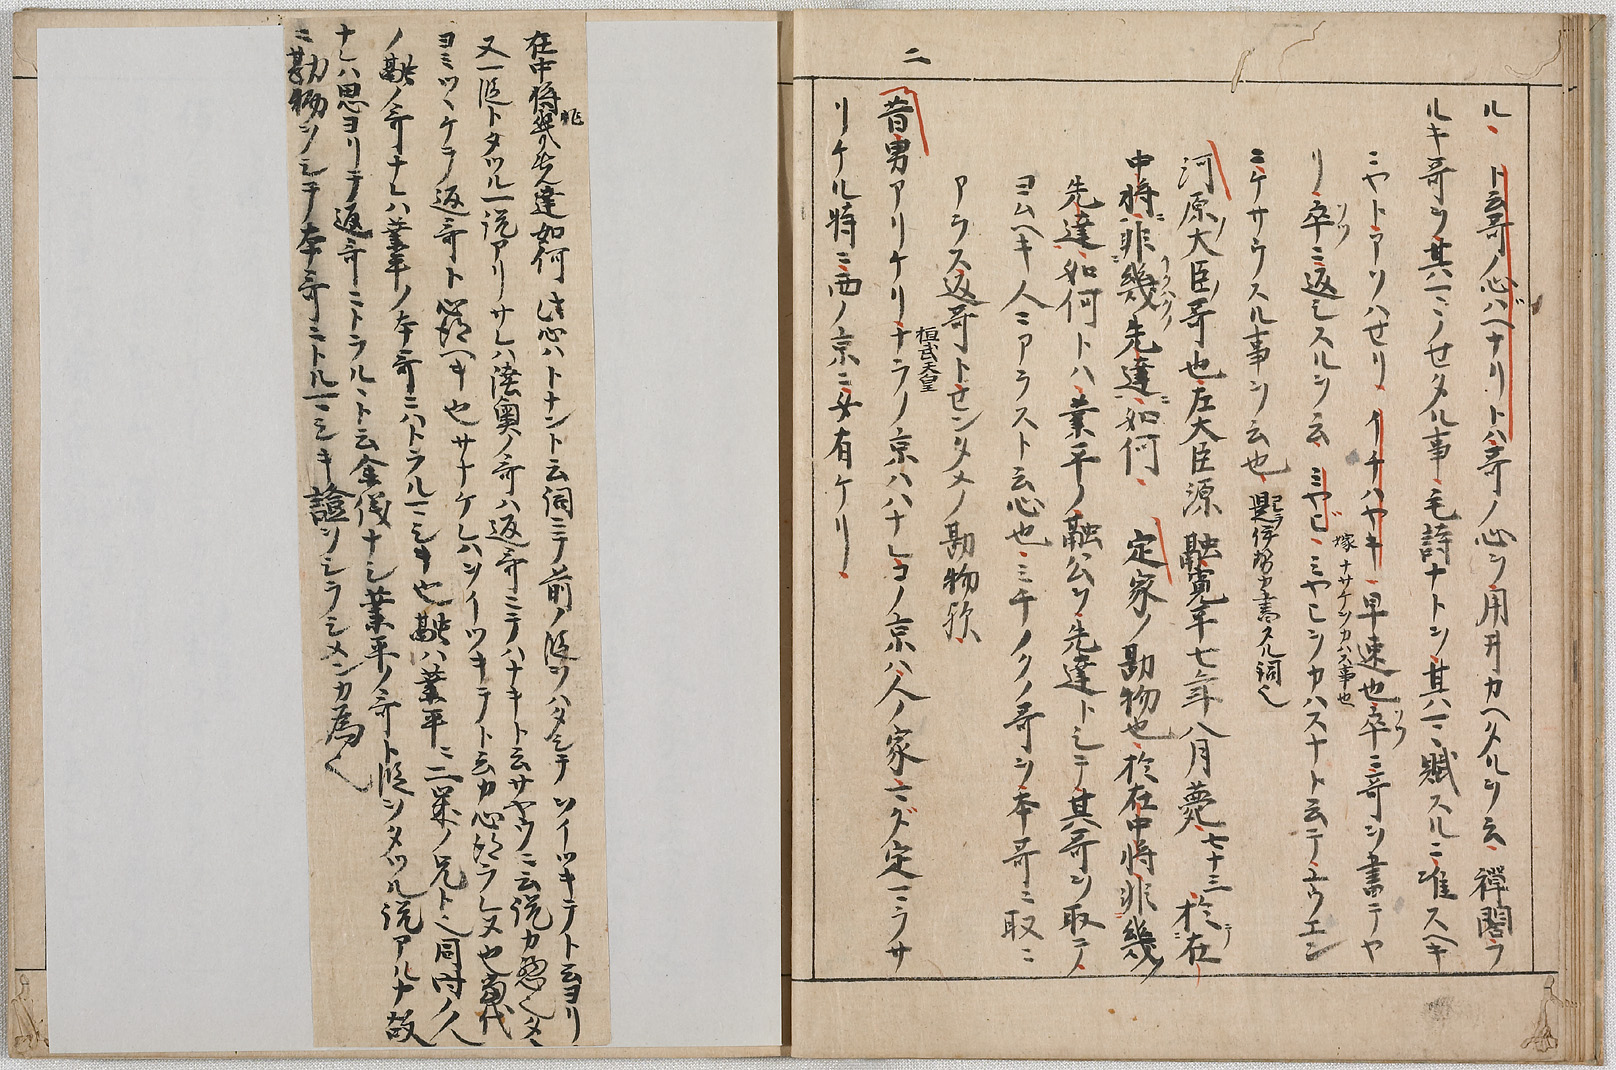 ル、ト云哥ノ心ハヘナリトハ哥ノ心ヲ用井カヘタルヲ云、禅閤ヲ
ルキ哥ヲ其一ニノせタル事、毛詩ナトヲ其八ニ賦スルニ准スヘキ
ニヤトアソハせリ、イチハヤキ、早速也卒ニ哥ヲ書テヤ
リ卒ニ返しスルヲ云、ミやヒ、ミやヒヲカハスナト云テユウエン
嫁ナサケヲカハス事也
ニケサウスル事ヲ云也
河原大臣哥也左大臣源融寛平七年八月薨七十三於在
中将非幾先達如何、定家ノ勘物也於在中将非幾
先達如何トハ業平ノ融公ヲ先達トシテ其哥ヲ取テ
ヨムヘキ人ニアラスト云心也ミチノクノ哥ヲ本哥ニ取ニ
アラス返哥トせンタメノ勘物歟
二
昔男アリケリナラノ京ハハナレコノ京ハ人ノ家マダ定マラサ
桓武天皇
リケル時ニ西ノ京ニ女有ケリ
在中将非幾先達如何此心ハトナント云詞ニテ前ノ段ヲハタシテソイツキテト云ヨリ
又一段トタツル一説アリサレハ陸奥ノ哥ハ返哥ニテハナキト云サヤウニ云説カ悪
ヨミツヽケテ返哥ト心得ヘキ也サナケレハソイツキテト云カ心得ラレヌ也当代
ノ融ノ哥ナレハ業平ノ本哥ニハトラルマシキ也融ハ業平ニ二歳ノ兄ト同時ノ人
ナレハ思ヨリテ返哥ニトラルヽト云余儀ナシ業平ノ哥ト段ヲタツル説アルナ故
ニ勘物ヲシテ本哥ニトルマシキ證ヲシラシメンカ為也